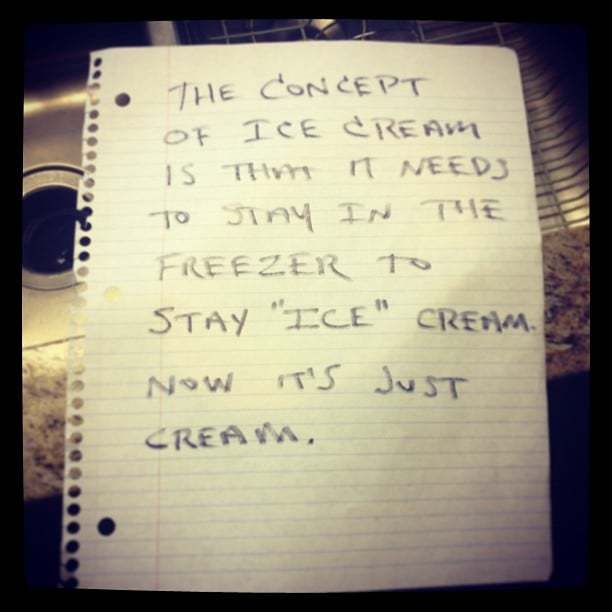 THE CONCEPT
OF ICE CREAM
IS THAT IT NEEDS
TO STAY IN THE
FREEZER TO
STAY "ICE" CREAM.
NOW IT'S JUST
CREAM.